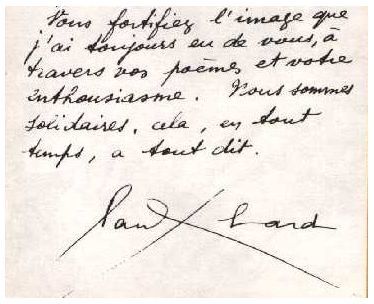 Vous fortifiez l'image que
j'ai toujours eu de vous, à
travers vos poèmes et votre
enthousiasme. Nous sommes
solidaires, cela, en tout
temps, a tout dit.
Paul Eluard